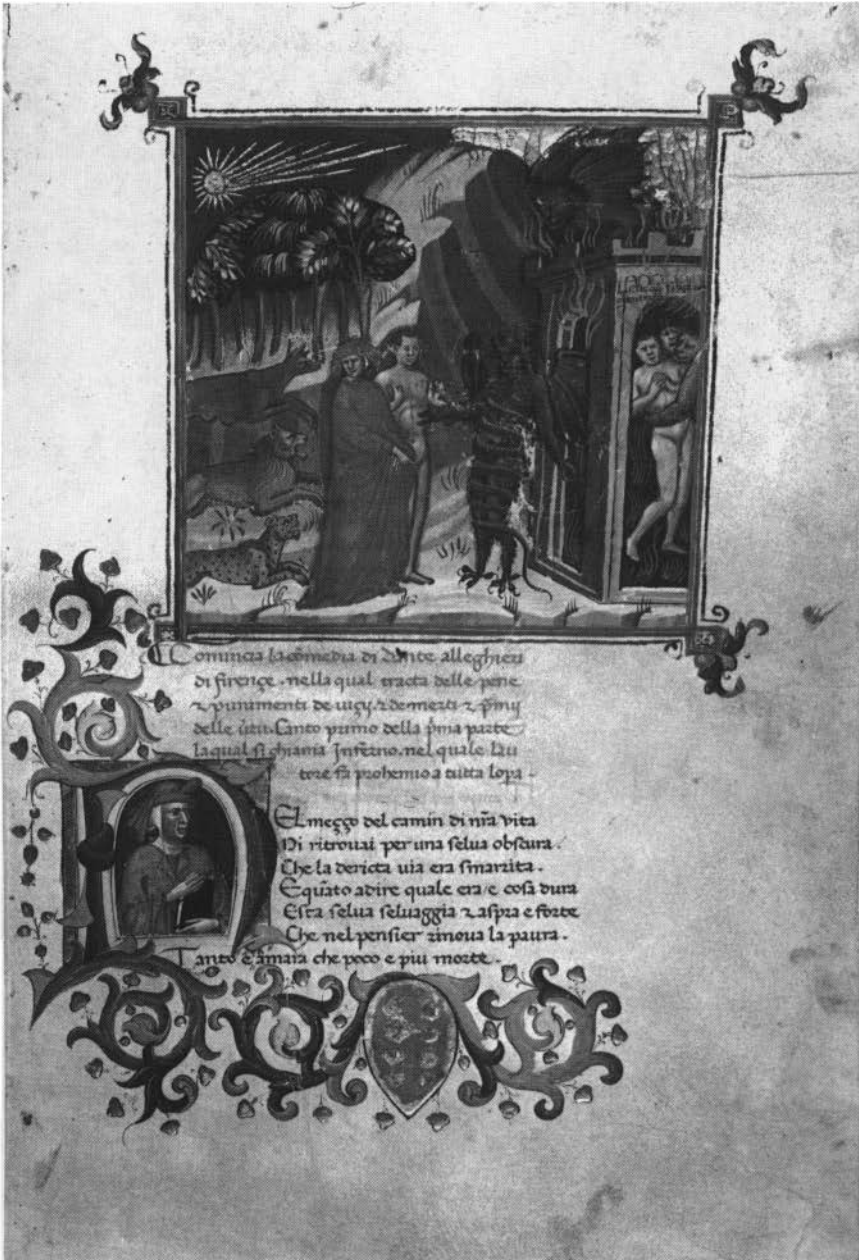 Comincia la cõmedia di Dante alleghieri
di firençe . nella qual tracta delle pene
⁊ punimenti de uiçij . ⁊ de meriti ⁊ p̃mij
delle ũtu . Canto primo della p̃ma parte
la qual si chiama Inferno . nel quale lau
tore fa prohemio a tutta lopa .
NEl meçço del camin di nr̃a vita
Mi ritrouai per una selua obscura .
Che la dericta uia era smarrita .
E quãto adire quale era e cosa dura
Esta selua seluaggia ⁊ aspra e forte
Che nel pensier rinoua la paura .
Tanto e amara che poco e piu morte .